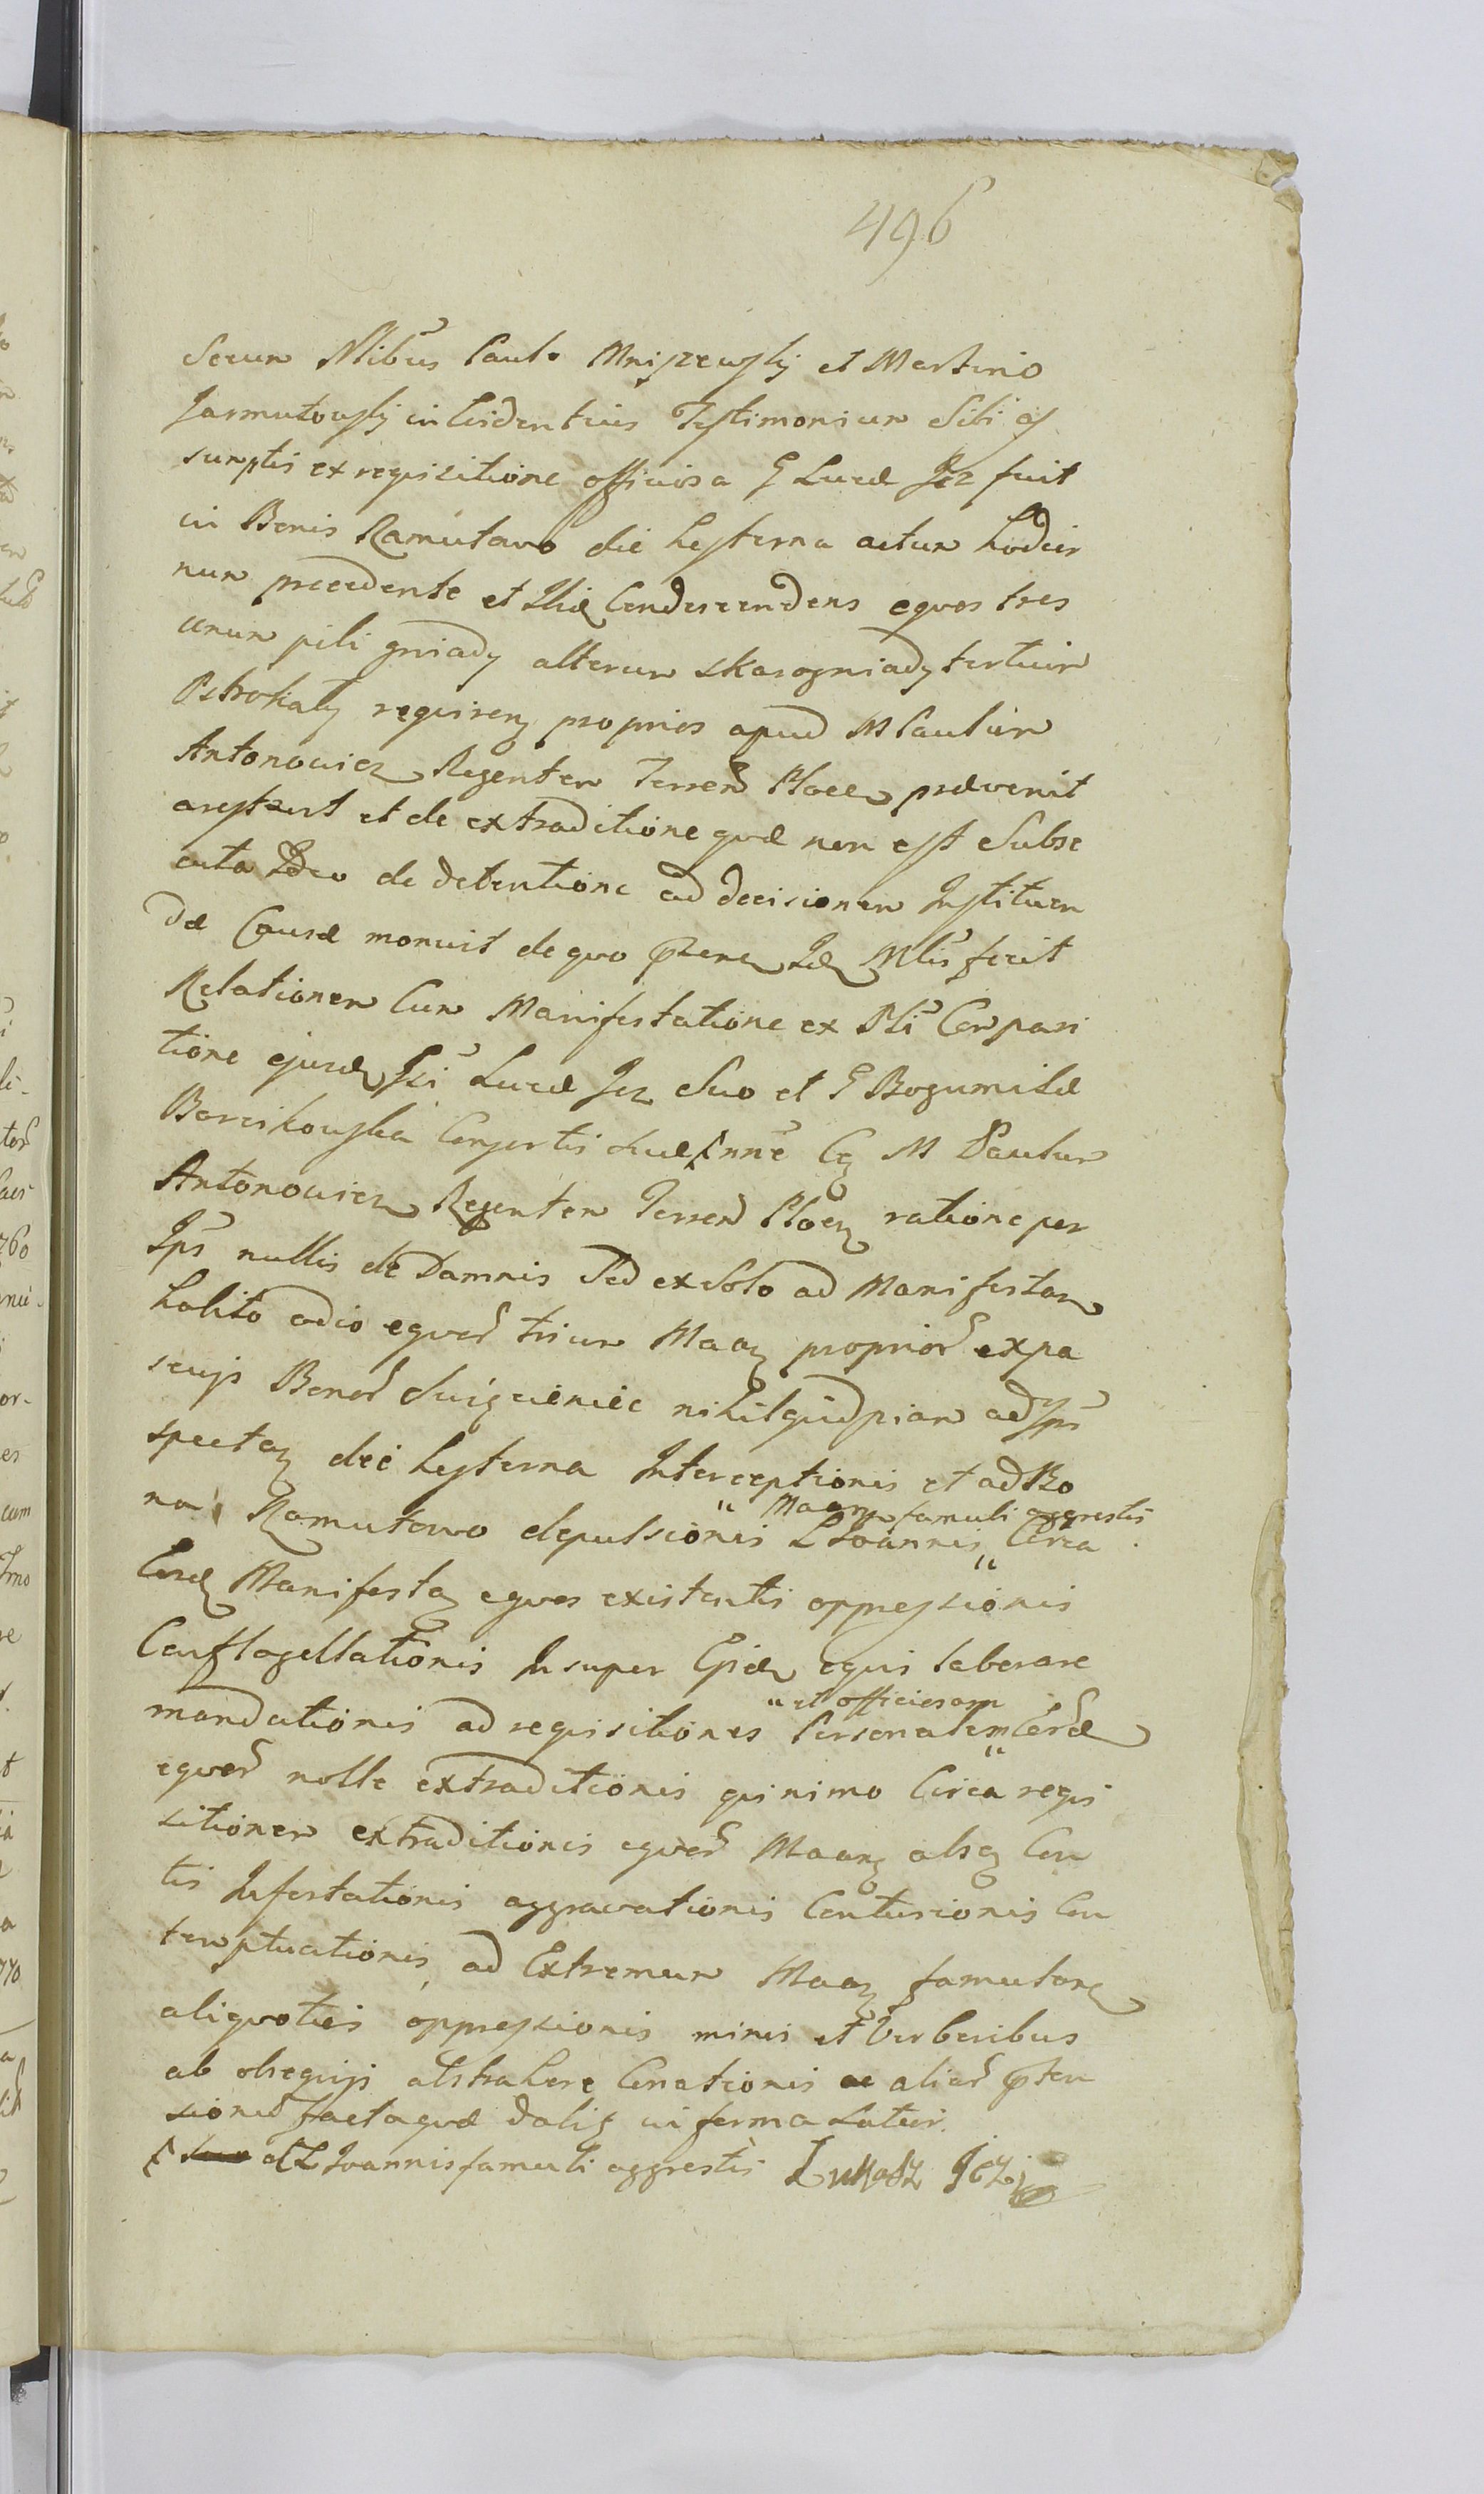 496
Secum Nlibus Paulo Mniszewskj et Martino
Jarmutowskj in Evidentius Testimonium Sibi as
sumptis ex requisitione officiosa G Lucæ Jez fuit
in Bonis Ramutowo die hesterna actum hodier
num præcedente et Ibiq Condescendens equos tres
unum pili gniady alterum skarogniady tertium
Pstrokaty requirenq proprios apud M Paulum
Antonowicz Regentem Terren Plocen prævenit
arestavit et de extraditione quæ non est Subse
cuta Ideo de detentione ad decisionem Instituen
dæ Causæ monuit de quo Idq Mlis fecit
Relationem Cum Manifestatione ex Pli Compari
tione ejusdq Gsi Lucæ Jez Suo et G Bogumilæ
Borcikowska Consortis suæ Nnē Cq M Paulum
Antonowicz Regentem Terren Plocq ratione per
Ips nullis de Damnis Sed ex Solo ad Manifestan
habito odio equor trium Maaq proprior ex pa
scujs Bonor nihil quidpiam ad Ips
spectaq die hesterna Interceptionis et ad Bo
na Ramutowo depulsionis L Joannis " Maanq famuli aggrestis " Circa
Eosdq Manifestaq equos existentis oppressionis
Conflagellationis Insuper equis laborare
mandationis ad requisitiones Personalem " et officiosam " Eord
equor nolle extraditionis quinimo Circa requi
sitionem extraditionis equor Maanq absq Con
tis Infestationis aggravationis Contusionis Con
temptuationis ad Extremum Maaq famulorq
aliquoties oppressionis minis et Verberibus
ab obsequijs abstrahere Conationis ac alior
sionum factaquæ Salis in forma Latior.
et L Joannis famuli aggrestis Lukasz Jez